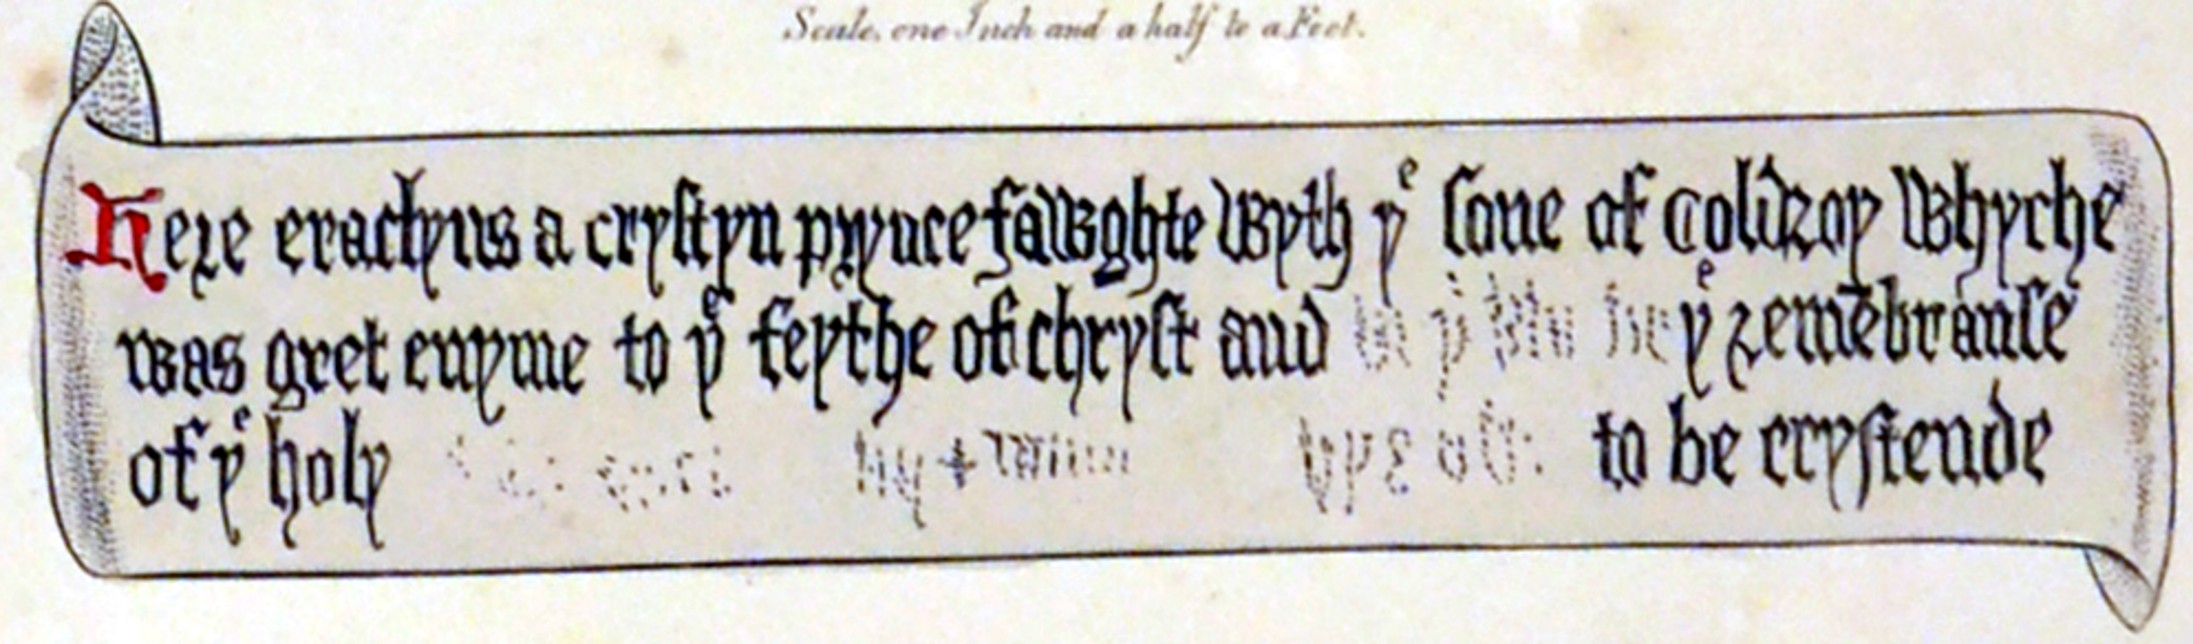 Scale, one Inch and a half to a Foot.
Here eraclyus a crystyn prynce fawghte wyth yͤ sone of Coldroy Whyche
was gret enyme to yͤ feythe of chryst and yͤ remēbranse
of yͤ holy to be crystende